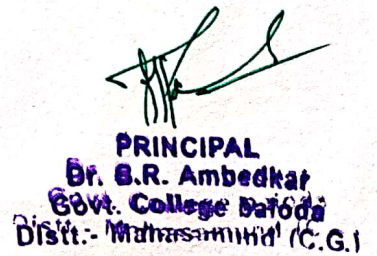 PRINCIPAL
Dr. B.R. Ambedkar
Govt. College Baloda
Distt.- Mahasamund (C.G.)